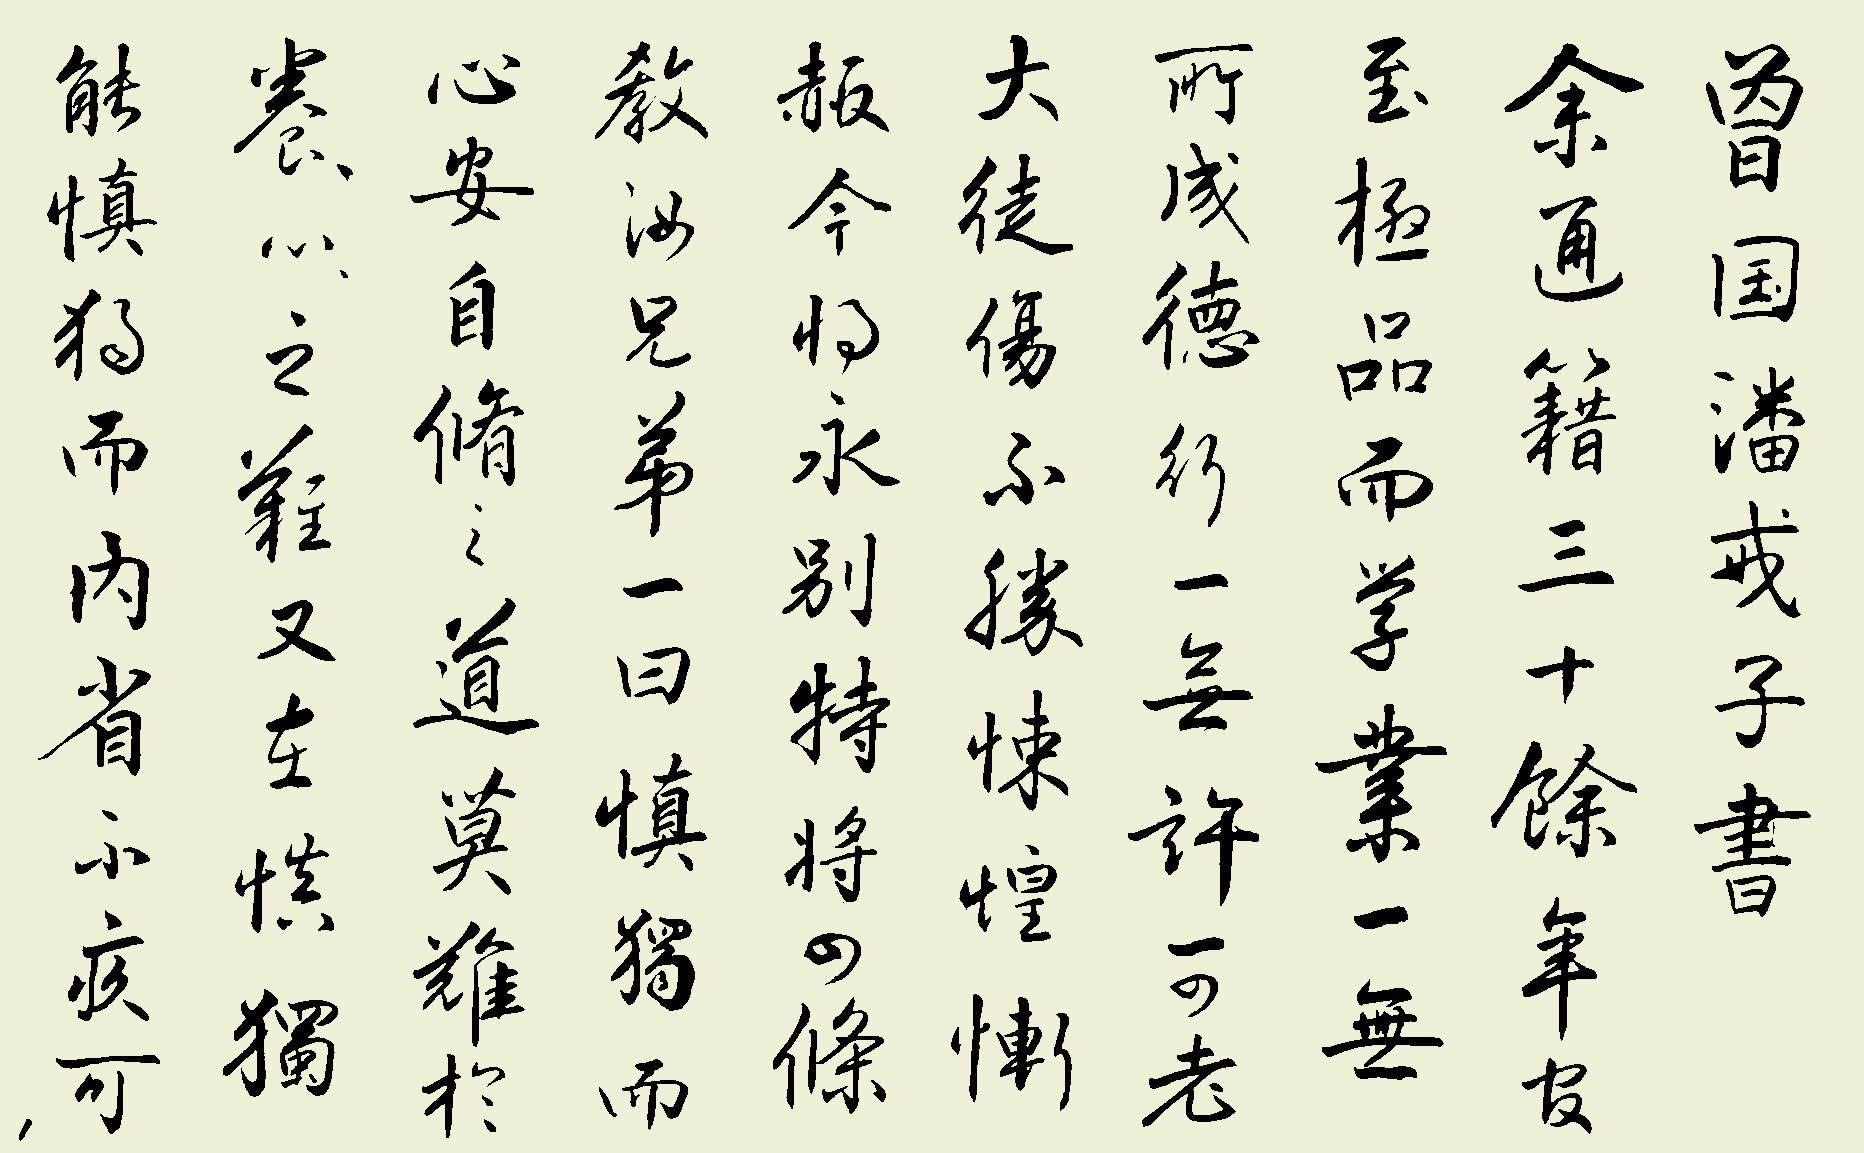 曾国潘戒子書
余通籍三十餘年官
至極品而学業一無
所成德行一無許可老
大徒傷不勝悚惶慚
赧今将永别特將四條
教汝兄弟一曰慎獨而
心安自脩之道莫難於
養心心之難又在慎獨
能慎獨而内省不疚可